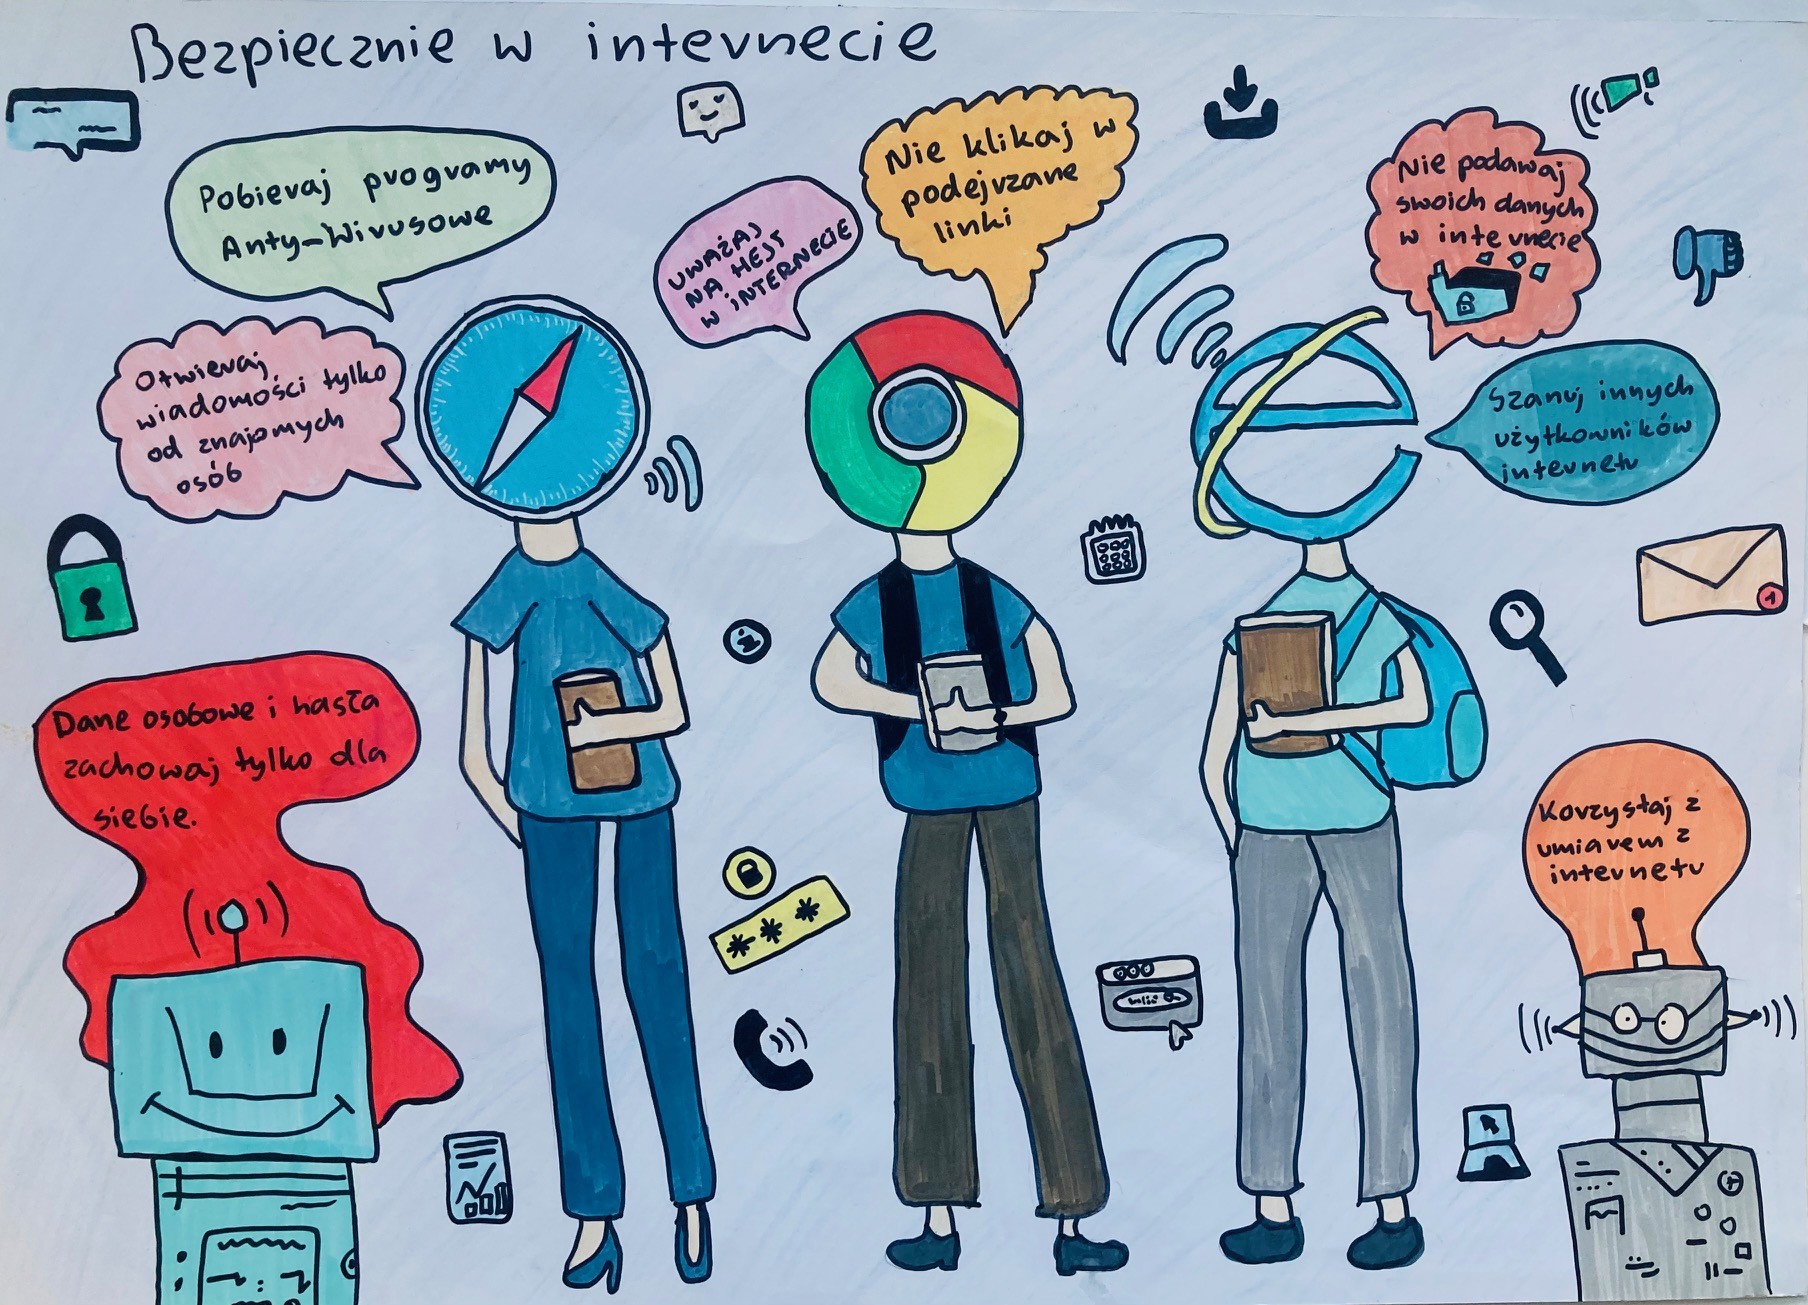 Bezpiecznie w internecie
Pobieraj programy
Anty-Wirusowe
UWAŻAJ
NA HEJT
W INTERNECIE
Nie klikaj w
podejrzane
linki
Nie podawaj
swoich danych
w internecie
Otwieraj
wiadomości tylko
od znajomych
osób
Szanuj innych
użytkowników
internetu
1
i
Dane osobowe i hasła
zachowaj tylko dla
siebie.
Korzystaj z
umiarem z
internetu
***